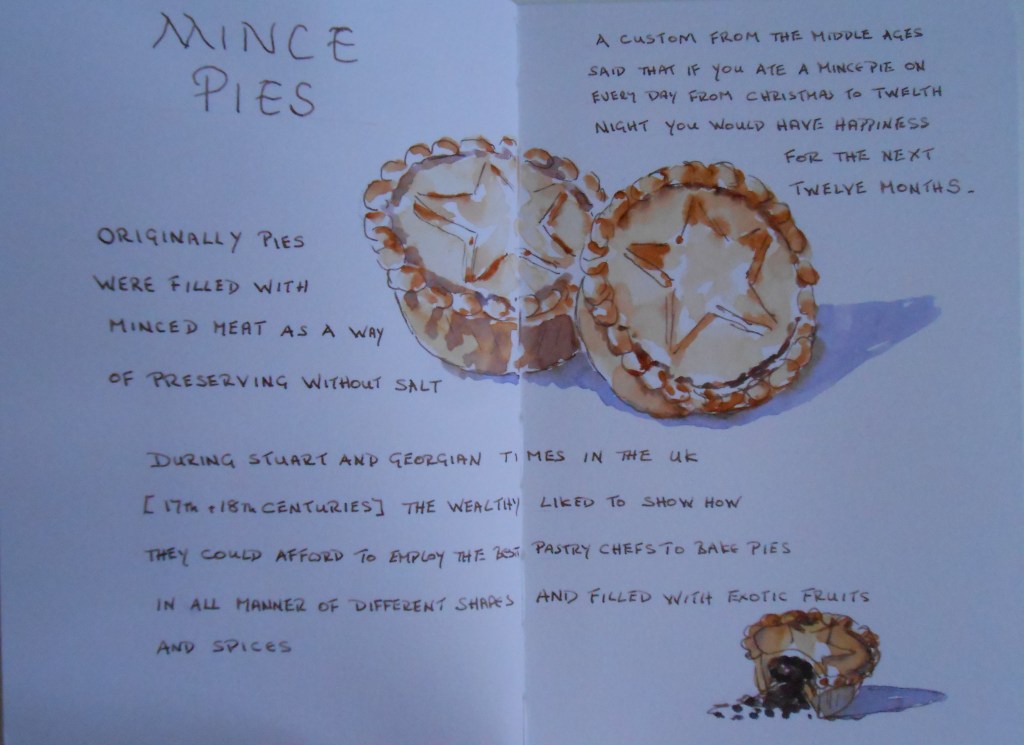 MINCE
PIES
A CUSTOM FROM THE MIDDLE AGES
SAID THAT IF YOU ATE A MINCEPIE ON
EVERY DAY FROM CHRISTMAS TO TWELTH
NIGHT YOU WOULD HAVE HAPPINESS
FOR THE NEXT
TWELVE MONTHS.
ORIGINALLY PIES
WERE FILLED WITH
MINCED MEAT AS A WAY
OF PRESERVING WITHOUT SALT
DURING STUART AND GEORGIAN TIMES IN THE UK
[17TH + 18TH CENTURIES] THE WEALTHY LIKED TO SHOW HOW
THEY COULD AFFORD TO EMPLOY THE BEST PASTRY CHEFS TO BAKE PIES
IN ALL MANNER OF DIFFERENT SHAPES AND FILLED WITH EXOTIC FRUITS
AND SPICES